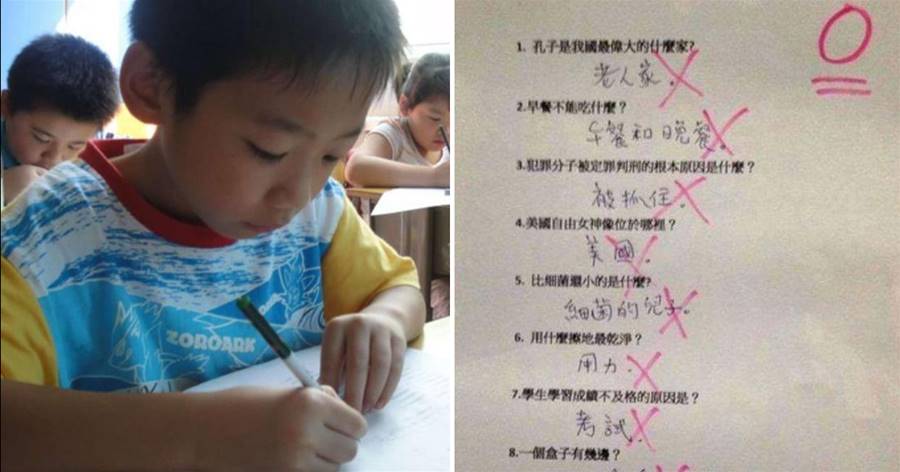 ZOROARK
0
1. 孔子是我國最偉大的什麼家?
老人家。
2.早餐不能吃什麼？
午餐和晚餐。
3.犯罪分子被定罪判刑的根本原因是什麼？
被抓住
4.美國自由女神像位於哪裡？
美國。
5. 比細菌還小的是什麼?
細菌的兒子。
6. 用什麼擦地最乾淨？
用力.
7.學生學習成績不及格的原因是？
考試.
8.一個盒子有幾邊？